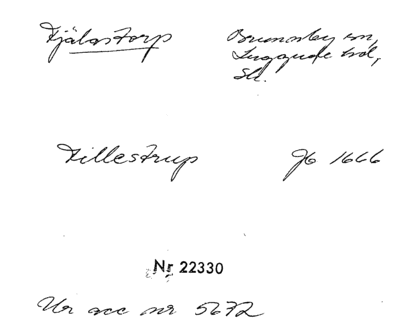 Kjälastorp Brunnby sn,
Luggude hd,
Sk.
Killestrup Jb 1666
Nr 22330
Ur acc nr 5672